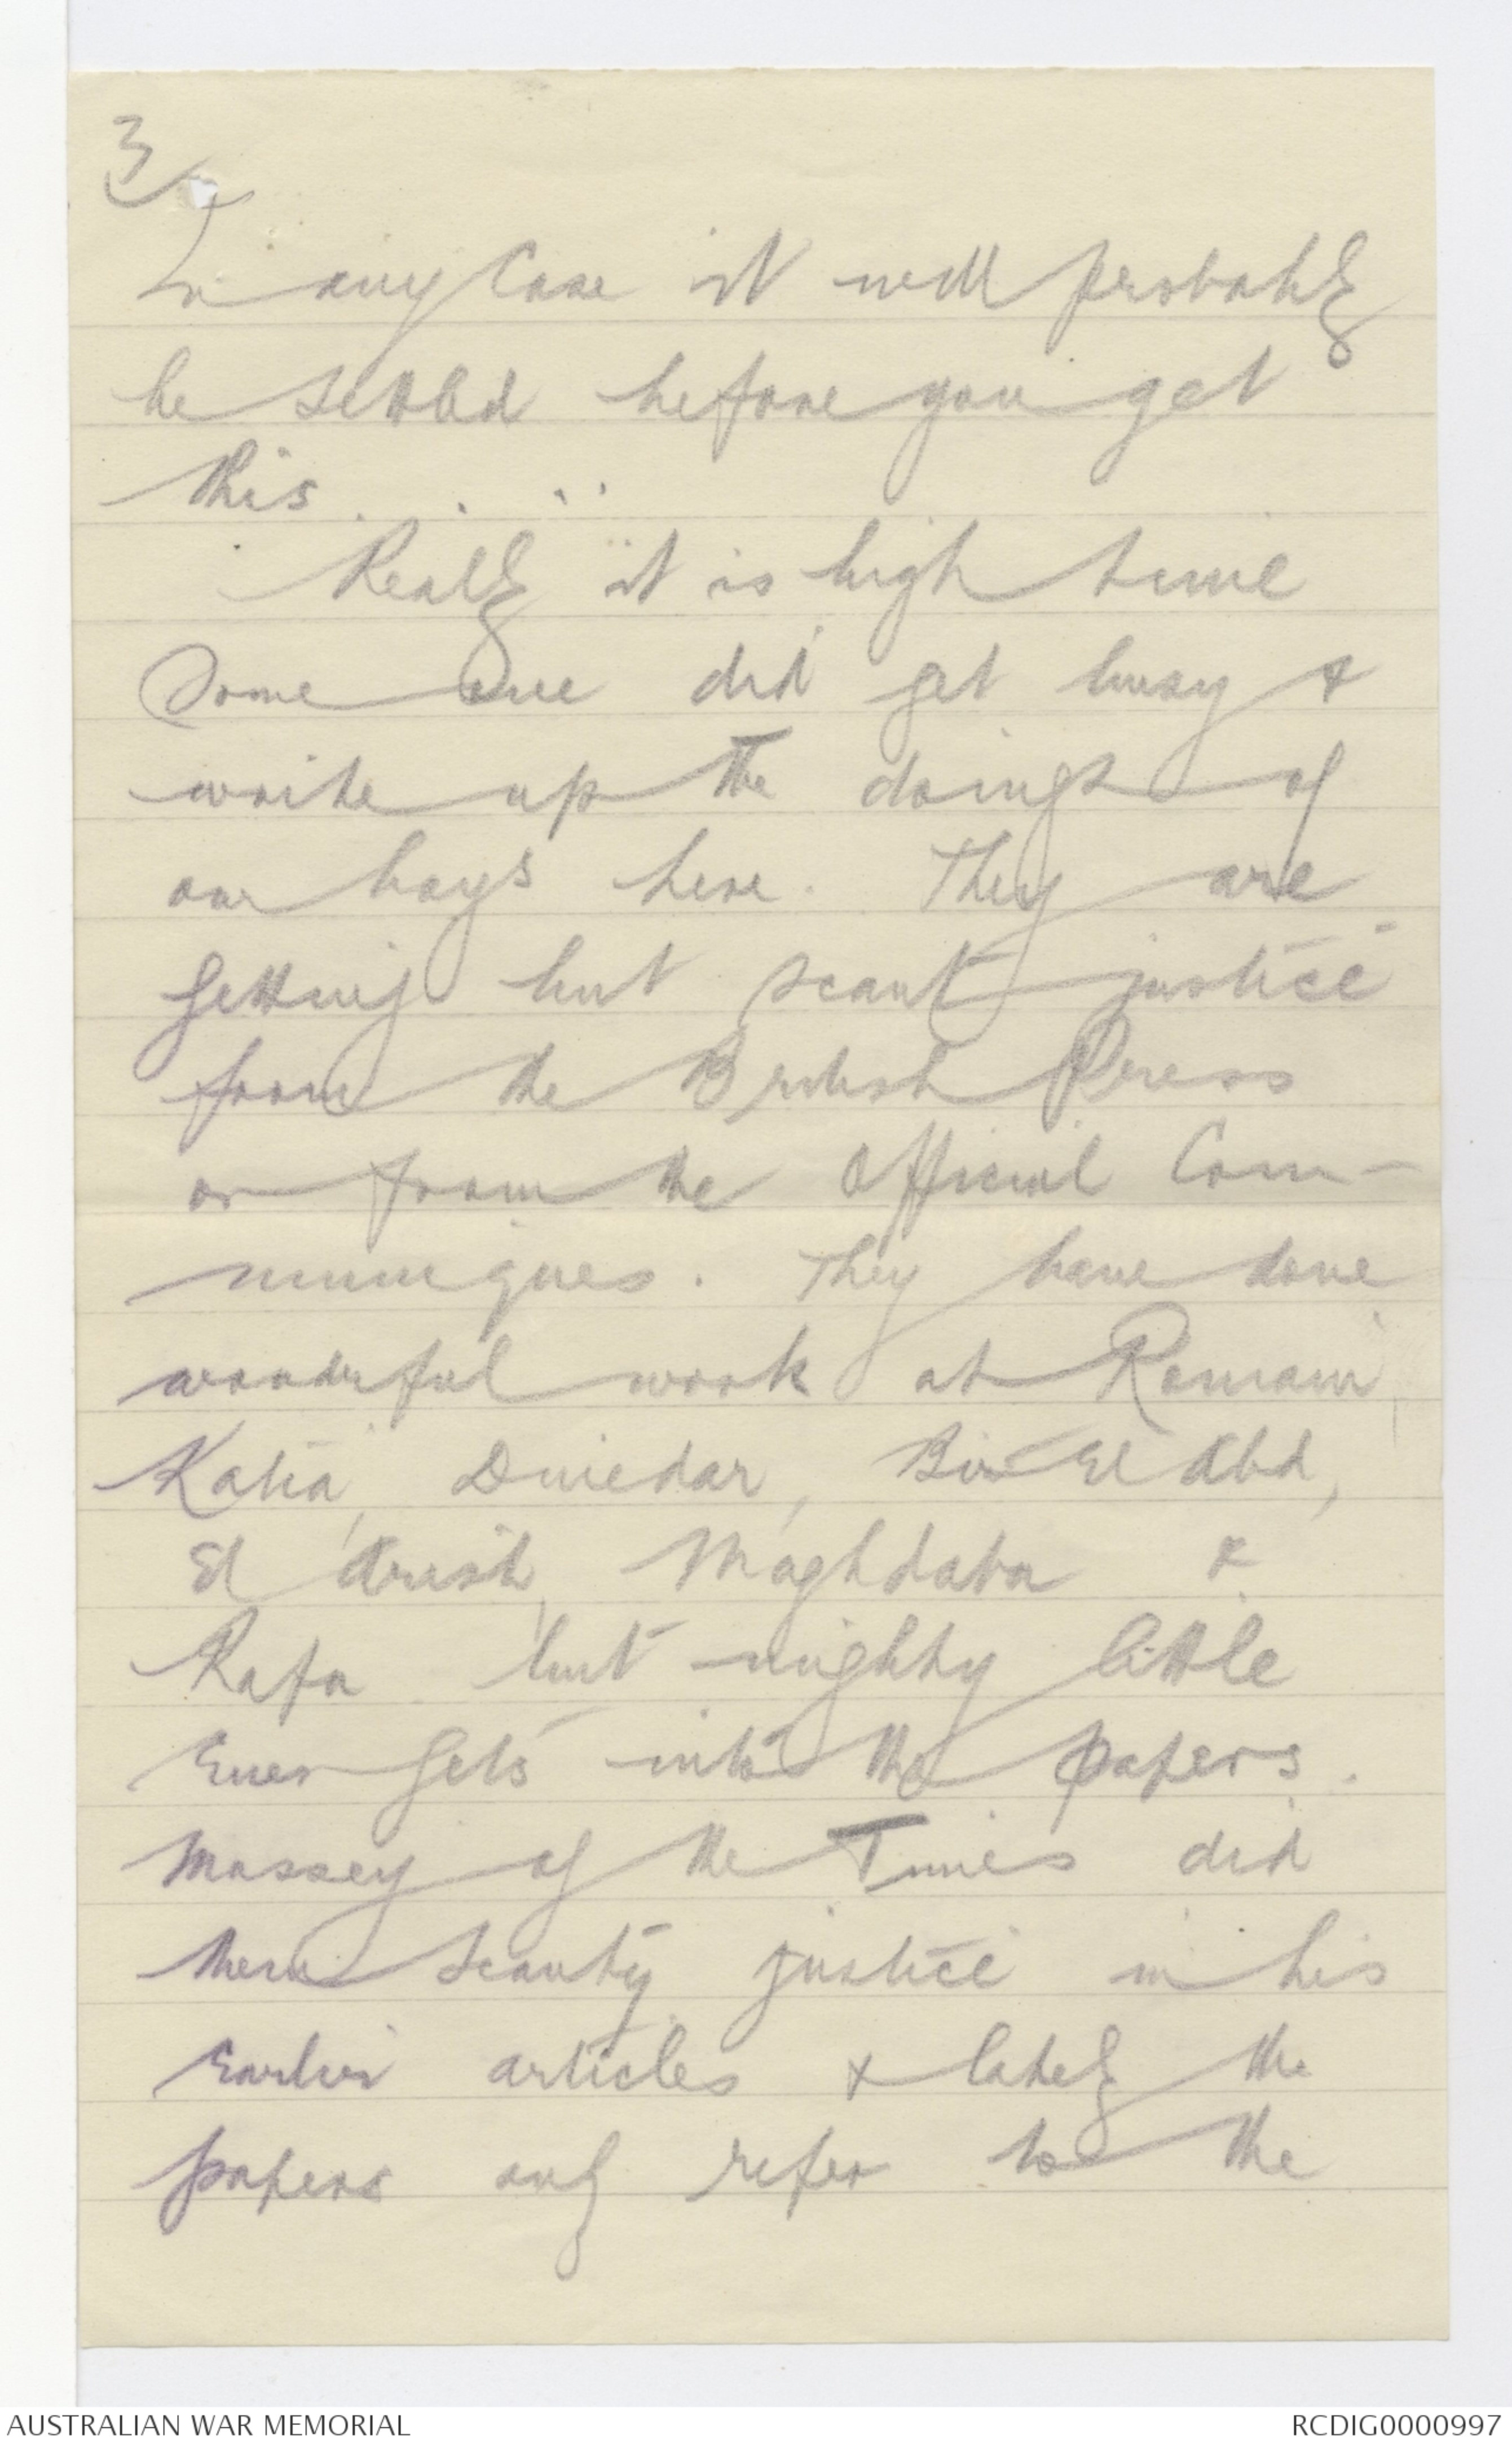 3
In any case it will probably
be settled before you get
this.
Really it is high time
Some one did get busy &
write up the doings of
our boys here. They are
getting but scant justice
from the British Press
or from the Official Com-
muniques. They have done
wonderful work at Romani,
Katia, Duiedar, Bir El Abd,
El Arish, Maghdaba &
Rafa but mighty little
Ever gets into the papers.
Massey of the Times did
them scanty justice in his
Earlier articles & lately the
papers only refer to the
AUSTRALIAN WAR MEMORIAL
RCDIG0000997